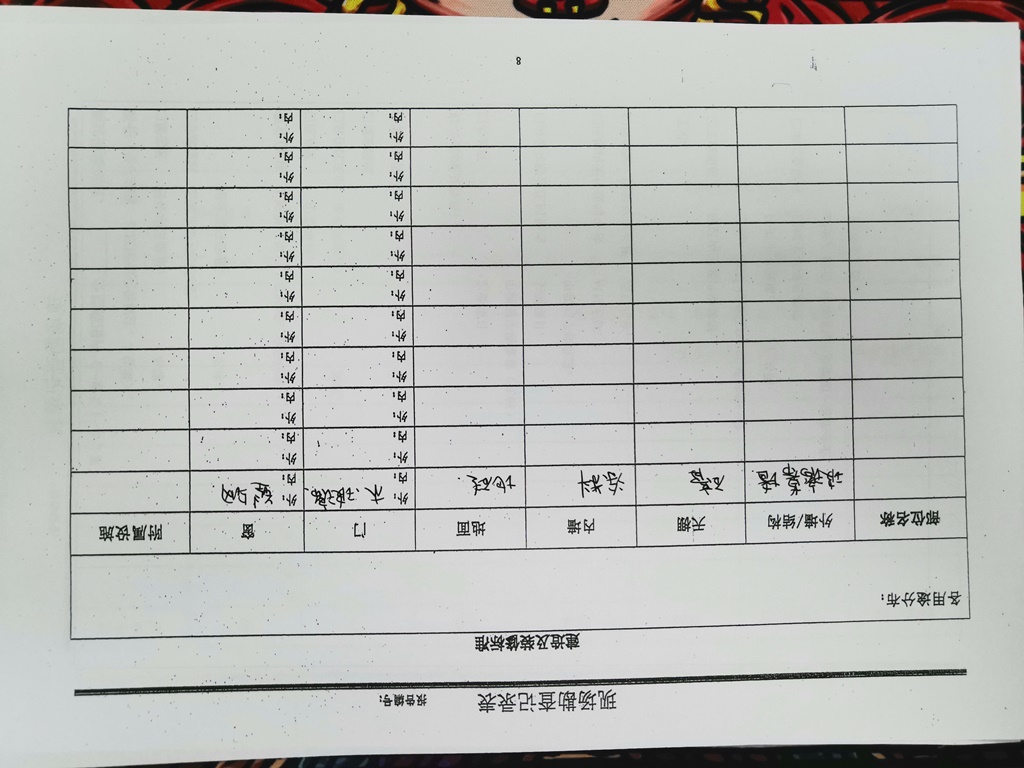 现场勘查记录表 报告编号:
建造及装修标准
各用途分布:
部位名称 外墙/结构 天棚 内墙 地面 门 窗 附属设施
玻璃幕墙 石膏 涂料 地砖 外: 木,玻璃 外: 铝合
内: 内:
外: 外:
内: 内:
外: 外:
内: 内:
外: 外:
内: 内:
外: 外:
内: 内:
外: 外:
内: 内:
外: 外:
内: 内:
外: 外:
内: 内:
外: 外:
内: 内:
外: 外:
内: 内:
8